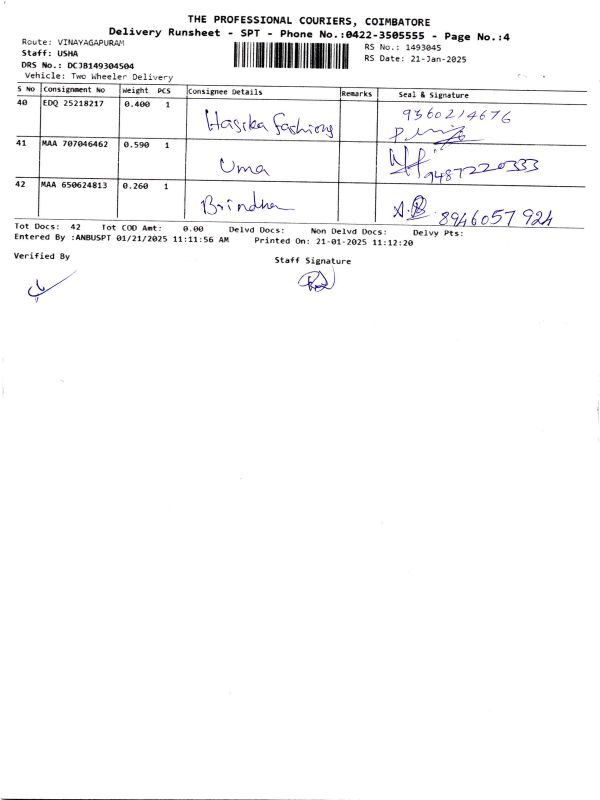 THE PROFESSIONAL COURIERS, COIMBATORE
Delivery Runsheet - SPT - Phone No.:0422-3505555 - Page No.:4
Route: VINAYAGAPURAM RS No.: 1493045
Staff: USHA RS Date: 21-Jan-2025
DRS No.: DCJB149304504
Vehicle: Two Wheeler Delivery
S No Consignment No Weight PCS Consignee Details Remarks Seal & Signature
40 EDQ 25218217 0.400 1 Hasika Fashions 9360214676
41 MAA 707046462 0.590 1 Uma 9487220333
42 MAA 650624813 0.260 1 Brindha A.B 8946057924
Tot Docs: 42 Tot COD Amt: 0.00 Delvd Docs: Non Delvd Docs: Delvy Pts:
Entered By :ANBUSPT 01/21/2025 11:11:56 AM Printed On: 21-01-2025 11:12:20
Verified By Staff Signature